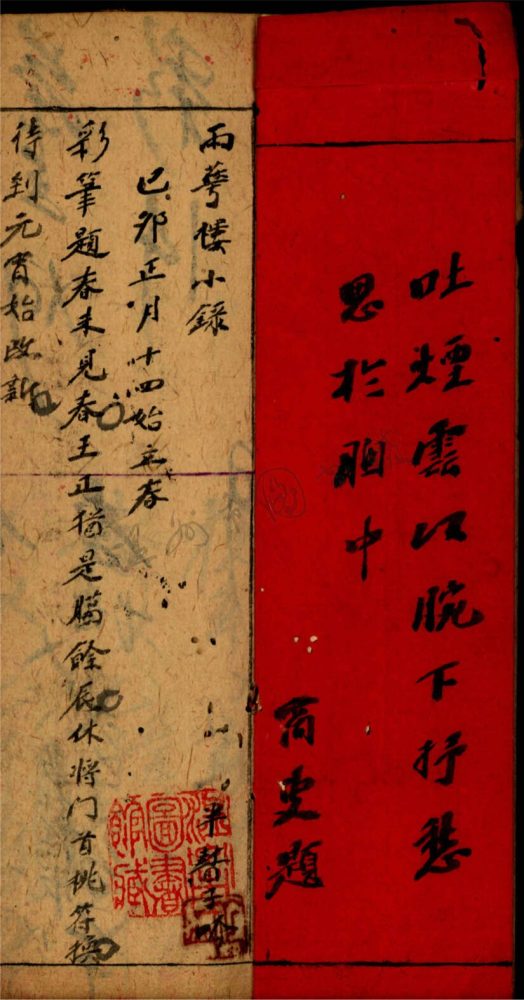 吐煙雲於腕下抒愁
思於胸中
商叟題
雨萼樓小錄
己卯正月十四始立春
彩筆題春未見春王正猶是臈餘辰休將门首桃符換
待到元宵始改新
圖書館藏